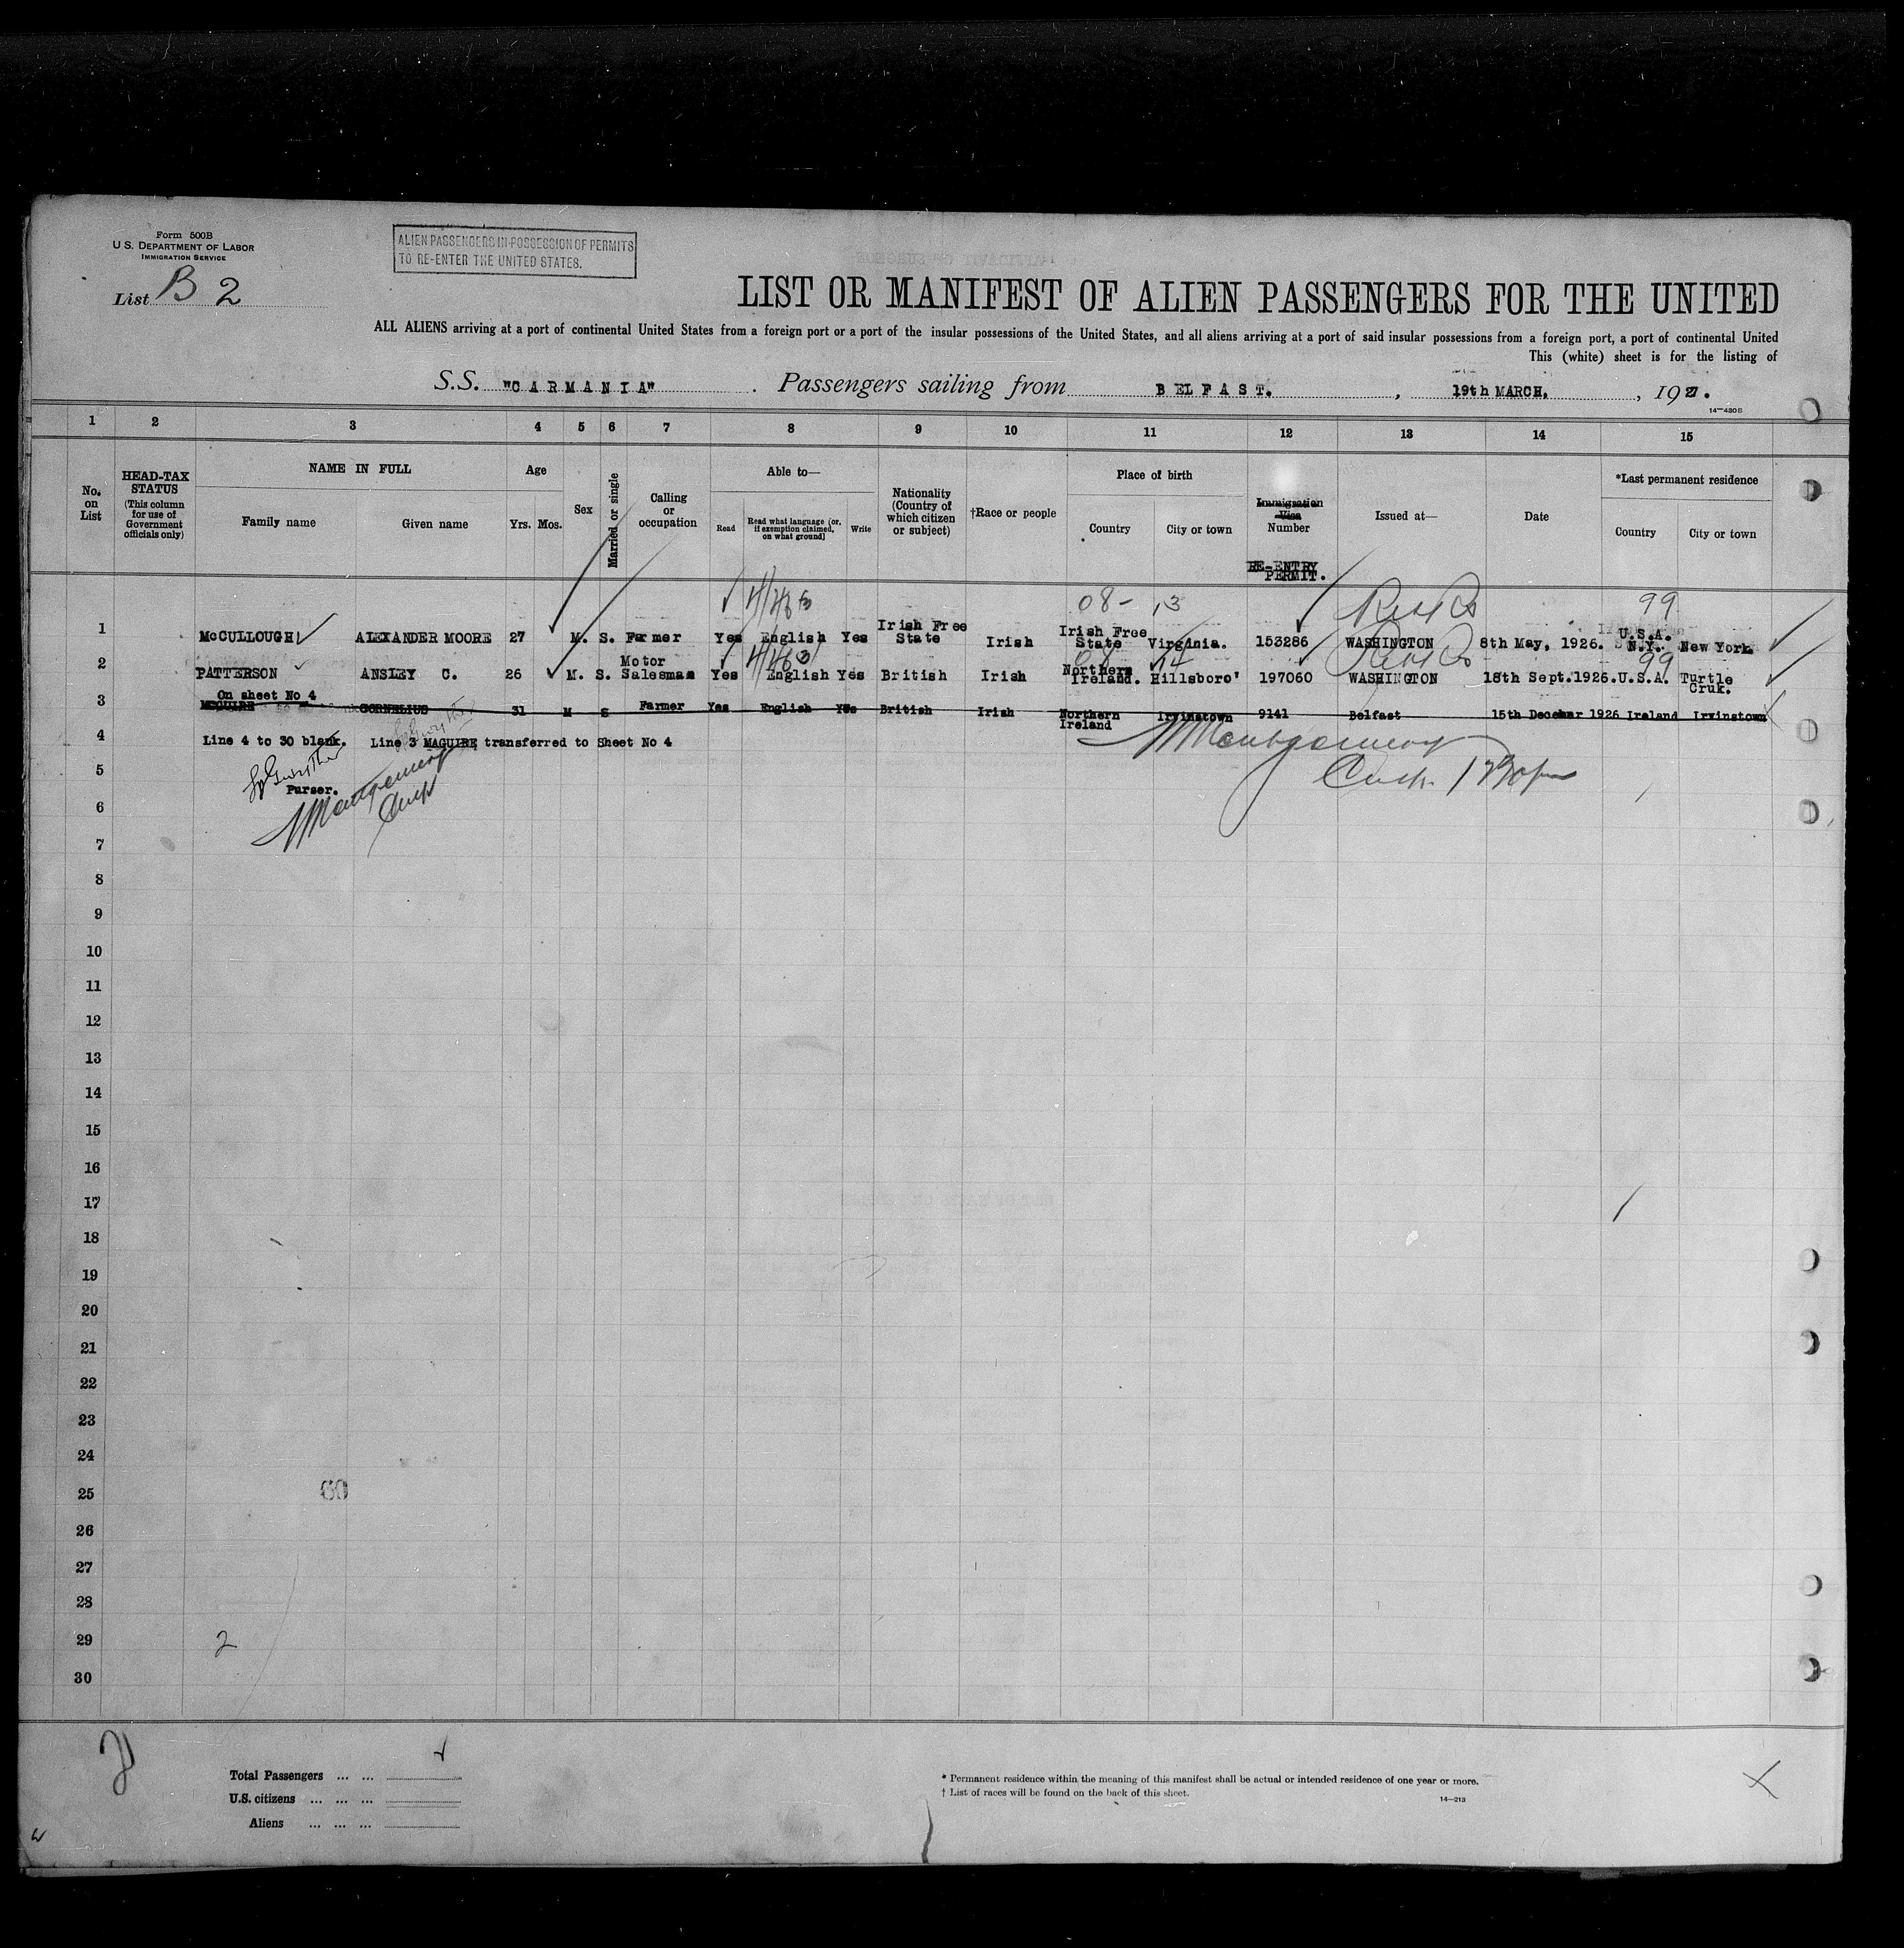 Form 500B
U. S. DEPARTMENT OF LABOR
IMMIGRATION SERVICE
ALIEN PASSENGERS IN POSSESSION OF PERMITS
TO RE-ENTER THE UNITED STATES.
List B 2
LIST OR MANIFEST OF ALIEN PASSENGERS FOR THE UNITED
ALL ALIENS arriving at a port of continental United States from a foreign port or a port of the insular possessions of the United States, and all aliens arriving at a port of said insular possessions from a foreign port, a port of continental United
This (white) sheet is for the listing of
S.S. "CARMANIA" . Passengers sailing from BELFAST. , 19th MARCH. , 1927.
14—430B
1 2 3 4 5 6 7 8 9 10 11 12 13 14 15
No. on List
HEAD-TAX STATUS
(This column for use of Government officials only)
NAME IN FULL
Family name Given name
Age
Yrs. Mos.
Sex
Married or single
Calling or occupation
Able to—
Read Read what language (or, if exemption claimed, on what ground) Write
Nationality (Country of which citizen or subject)
†Race or people
Place of birth
Country City or town
Immigration Visa Number
RE-ENTRY PERMIT.
Issued at—
Date
*Last permanent residence
Country City or town
08- 13 99
1 McCULLOUGH ALEXANDER MOORE 27 M. S. Farmer Yes English Yes Irish Free State Irish Irish Free State Virginia. 153286 WASHINGTON 8th May, 1926. U.S.A. N.Y. New York.
99
2 PATTERSON ANSLEY C. 26 M. S. Motor Salesman Yes English Yes British Irish Northern Ireland. Hillsboro' 197060 WASHINGTON 18th Sept.1926. U.S.A. Turtle Cruk.
On sheet No 4
3 MCGUIRE CORNELIUS 31 M S Farmer Yes English Yes British Irish Northern Ireland Irvinstown 9141 Belfast 15th Decemar 1926 Ireland Irvinstown
4 Line 4 to 30 blank. Line 3 MAGUIRE transferred to Sheet No 4
5
Purser.
6
7
8
9
10
11
12
13
14
15
16
17
18
19
20
21
22
23
24
25
60
26
27
28
29
2
30
Total Passengers ... ...
U.S. citizens ... ... ...
Aliens ... ... ...
* Permanent residence within the meaning of this manifest shall be actual or intended residence of one year or more.
† List of races will be found on the back of this sheet.
14—213